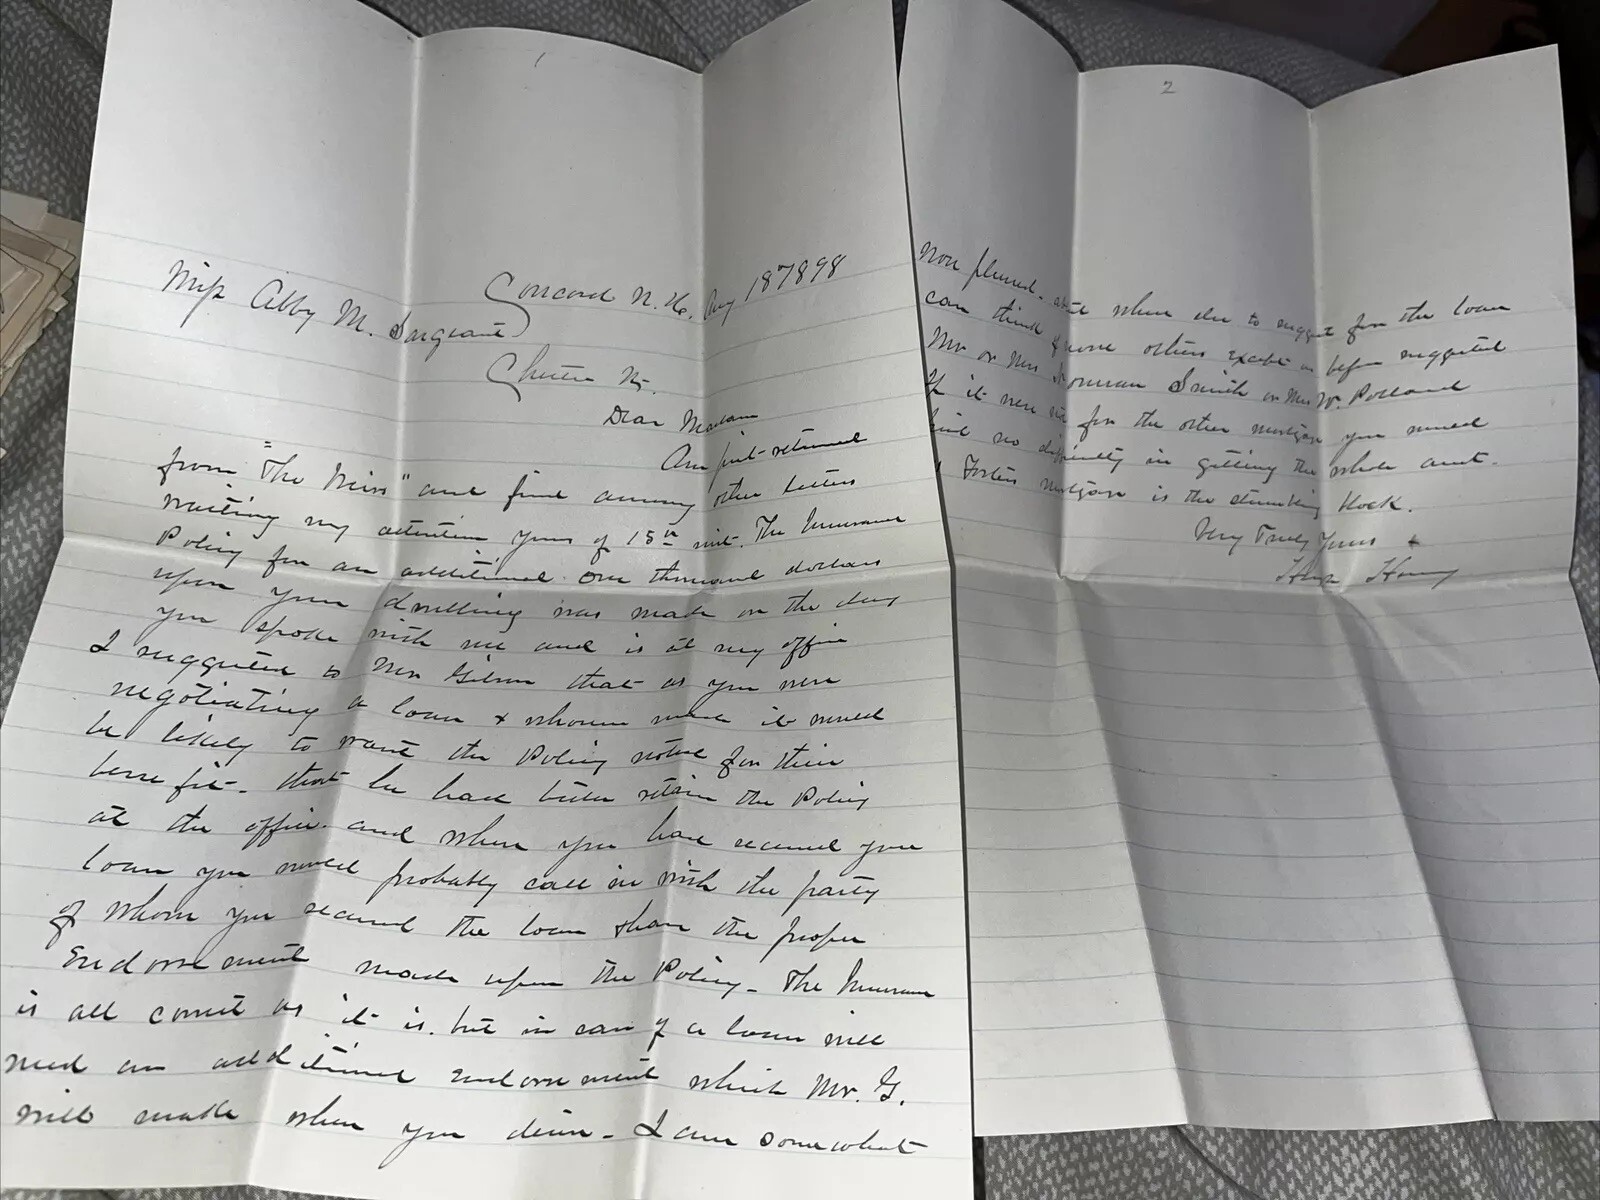 1
Concord N.H. Aug 18 1898
Miss Abby M. Sargeant
Chester N.H.
Dear Madam
Am just returned
from "The Weirs" and find among other letters
waiting my attention yours of 15th inst. The Insurance
Policy for an additional one thousand dollars
upon your dwelling was made on the day
you spoke with me and is at my office
I suggested to Mr Gilson that as you were
negotiating a loan & whoever made it would
be likely to want the Policy noted for their
benefit - that he had better retain the Policy
at the office. and when you have secured your
loan you would probably call in with the party
of whom you secured the loan & have the proper
Endorsement made upon the Policy - The Insurance
is all correct as it is. but in case of a loan will
need an additional endorsement which Mr. G.
will make when you desire - I am somewhat
2
Non plused - where else to suggest for the loan
can think of none others except as before suggested
Mr or Mrs Norman Smith or Mrs W. Pollard
If it were not for the other mortgage you would
have no difficulty in getting the whole amt.
Foster mortgage is the stumbling block.
Very Truly Yours
Henry